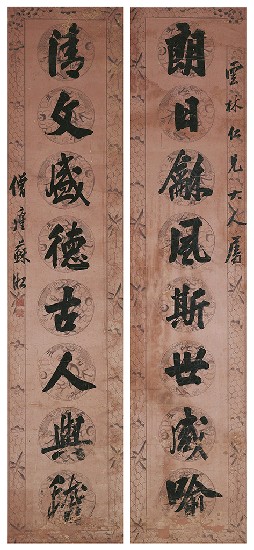 雲林仁兄大人屬
朗日龢風斯世咸喻
清文盛德古人與稽
僧蘇